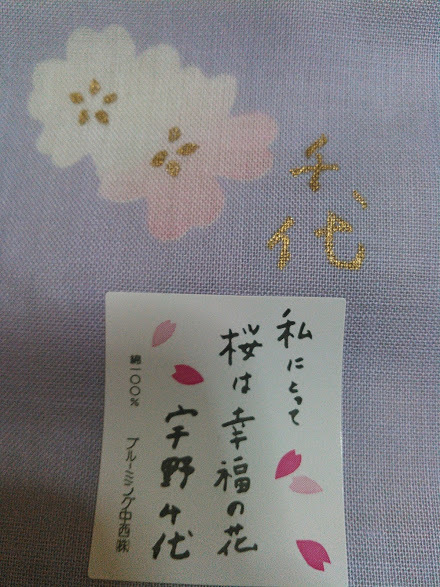 千代
私にとって
桜は幸福の花
宇野千代
綿一〇〇％　ブルーミング中西㈱